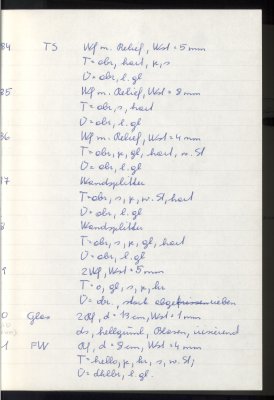 84 TS Wf m. Relief, Wst = 5 mm
T = obr, hart, k, s
Ü = obr, l. gl
85 Wf m. Relief, Wst = 8 mm
T = obr, s, hart
Ü = obr, l. gl
86 Wf m. Relief, Wst = 4 mm
T = obr, k, gl, hart, w. St
Ü = obr, l. gl
87 Wandsplitter
T = obr, s, k, w. St, hart
Ü = obr, l. gl
8 Wandsplitter
T = obr, s, k, gl, hart
Ü = obr, l. gl
9 2 Wf, Wst = 5 mm
T = o, gl, s, k, br
Ü = dr, stark
0 Glas d = 13 cm, Wst = 1 mm
ds, hellgrünl, Blasen, irisierend
1 PW d = 9 cm, Wst = 4 mm
T = hello, k, br, s, w. St,
Ü = dhlbr, l. gl.